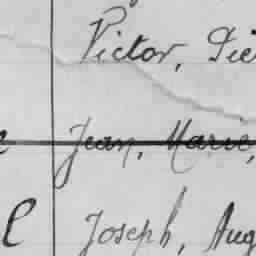 Victor, Pie
Jean, Marie,
l Joseph, Aug